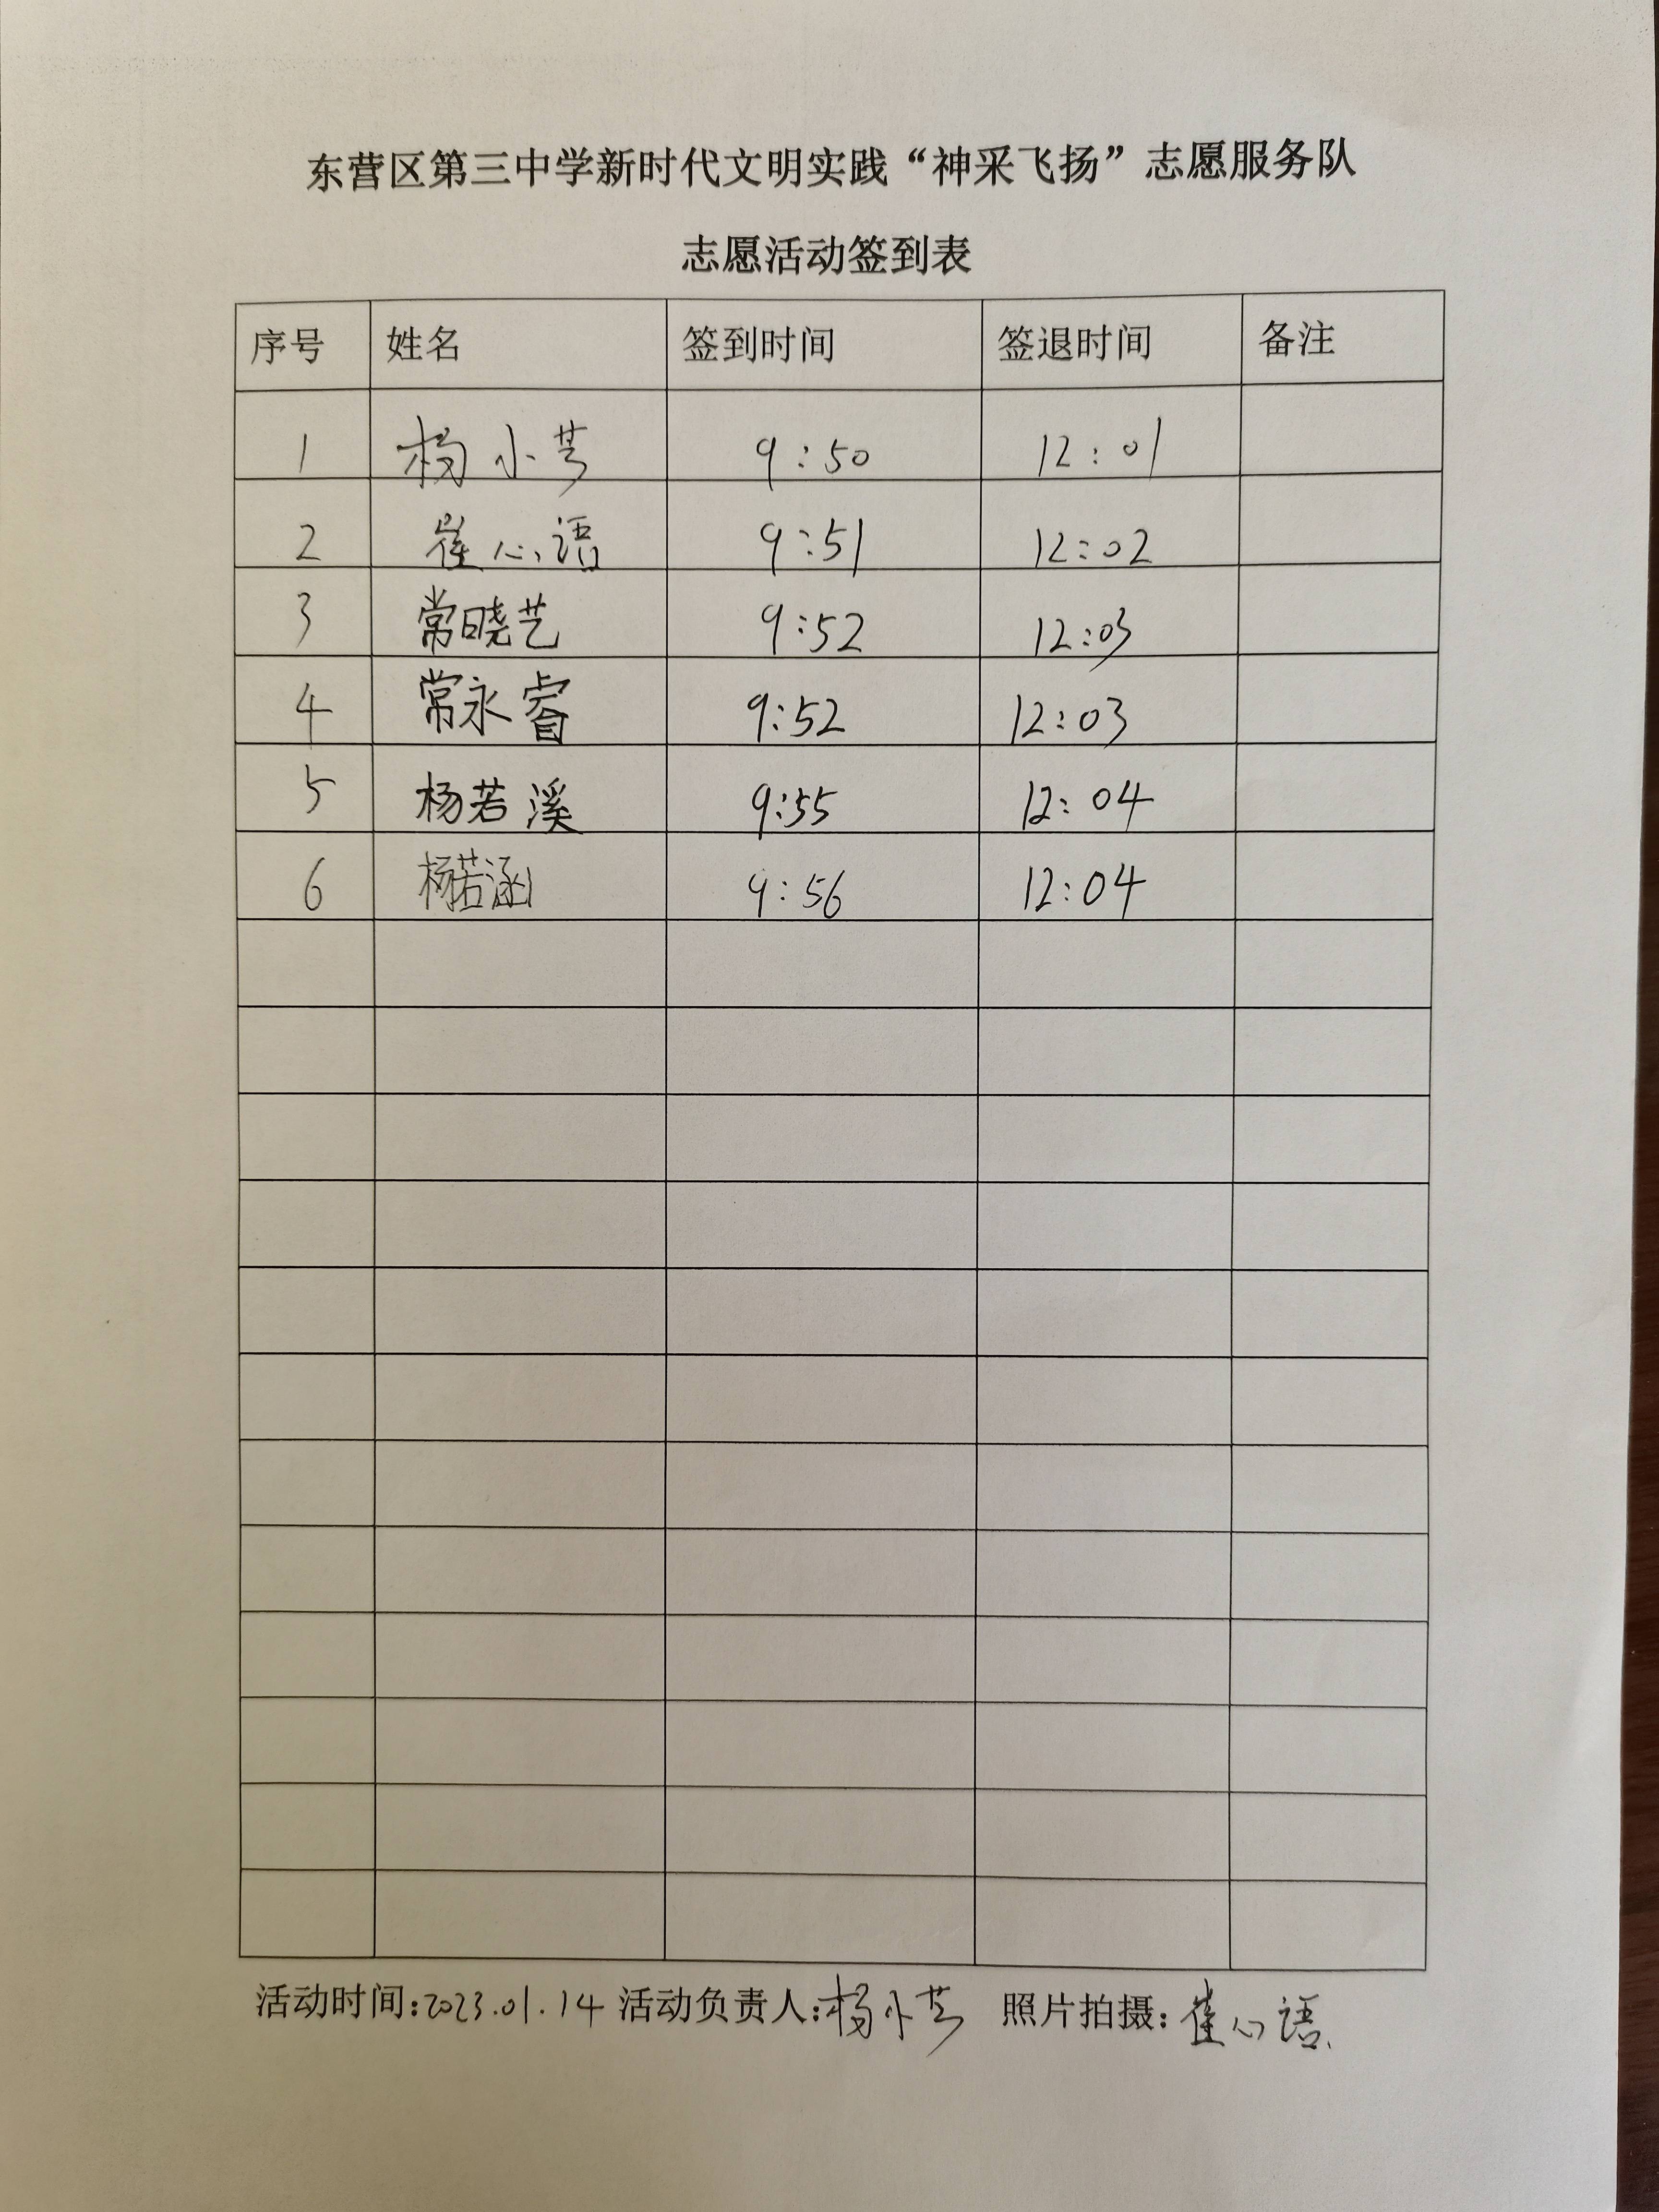 东营区第三中学新时代文明实践“神采飞扬”志愿服务队
志愿活动签到表
序号 姓名 签到时间 签退时间 备注
1 杨小芸 9:50 12:01
2 崔心语 9:51 12:02
3 常晓艺 9:52 12:03
4 常永睿 9:52 12:03
5 杨若溪 9:55 12:04
6 杨若涵 9:56 12:04
活动时间:2023.01.14 活动负责人:杨小芸 照片拍摄:崔心语